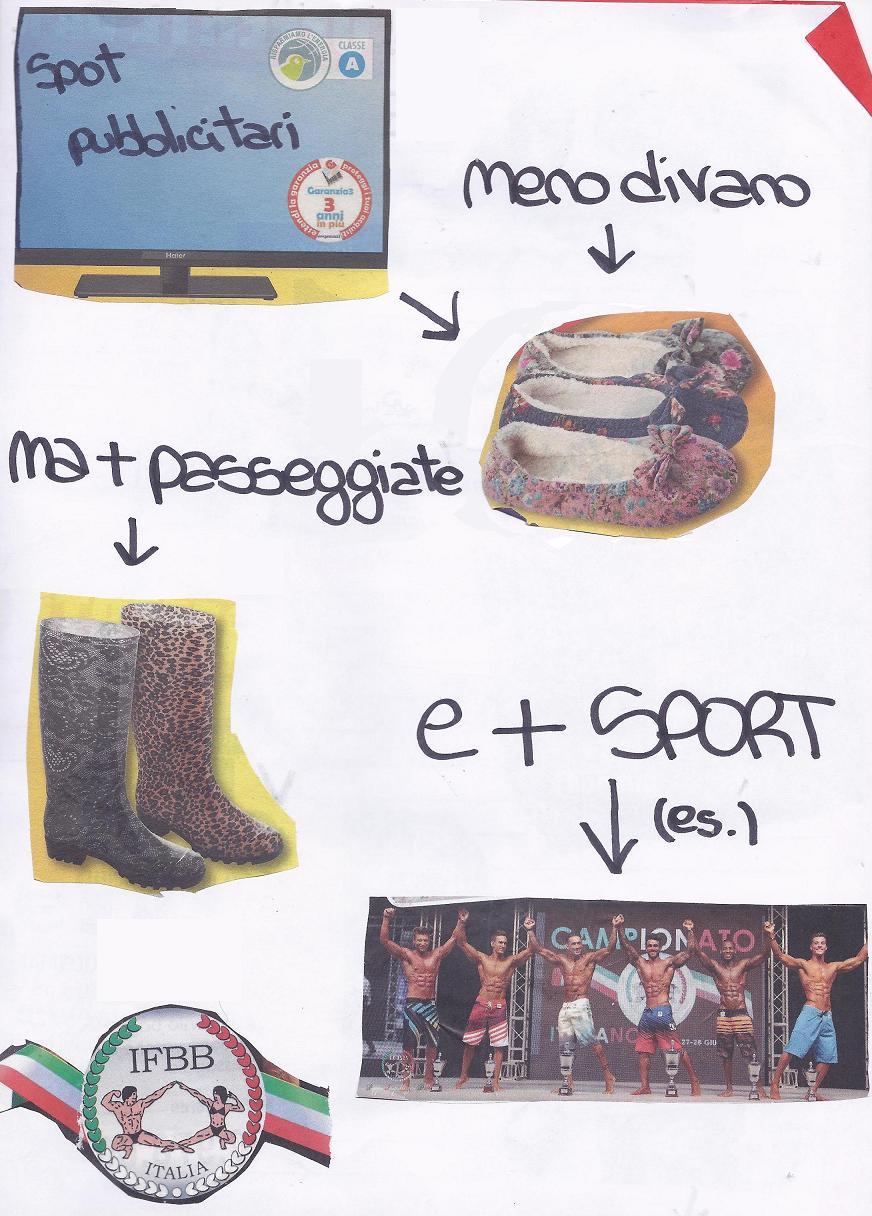 spot
pubblicitari
RISPARMIAMO L'ENERGIA
CLASSE
A
estendi la garanzia proteggi i tuoi acquisti
Garanzia3
3
anni
in più
Haier
meno divano
ma + passeggiate
e + SPORT
(es.)
CAMPIONATO
ITALIANO
27-28 GIU
IFBB
ITALIA